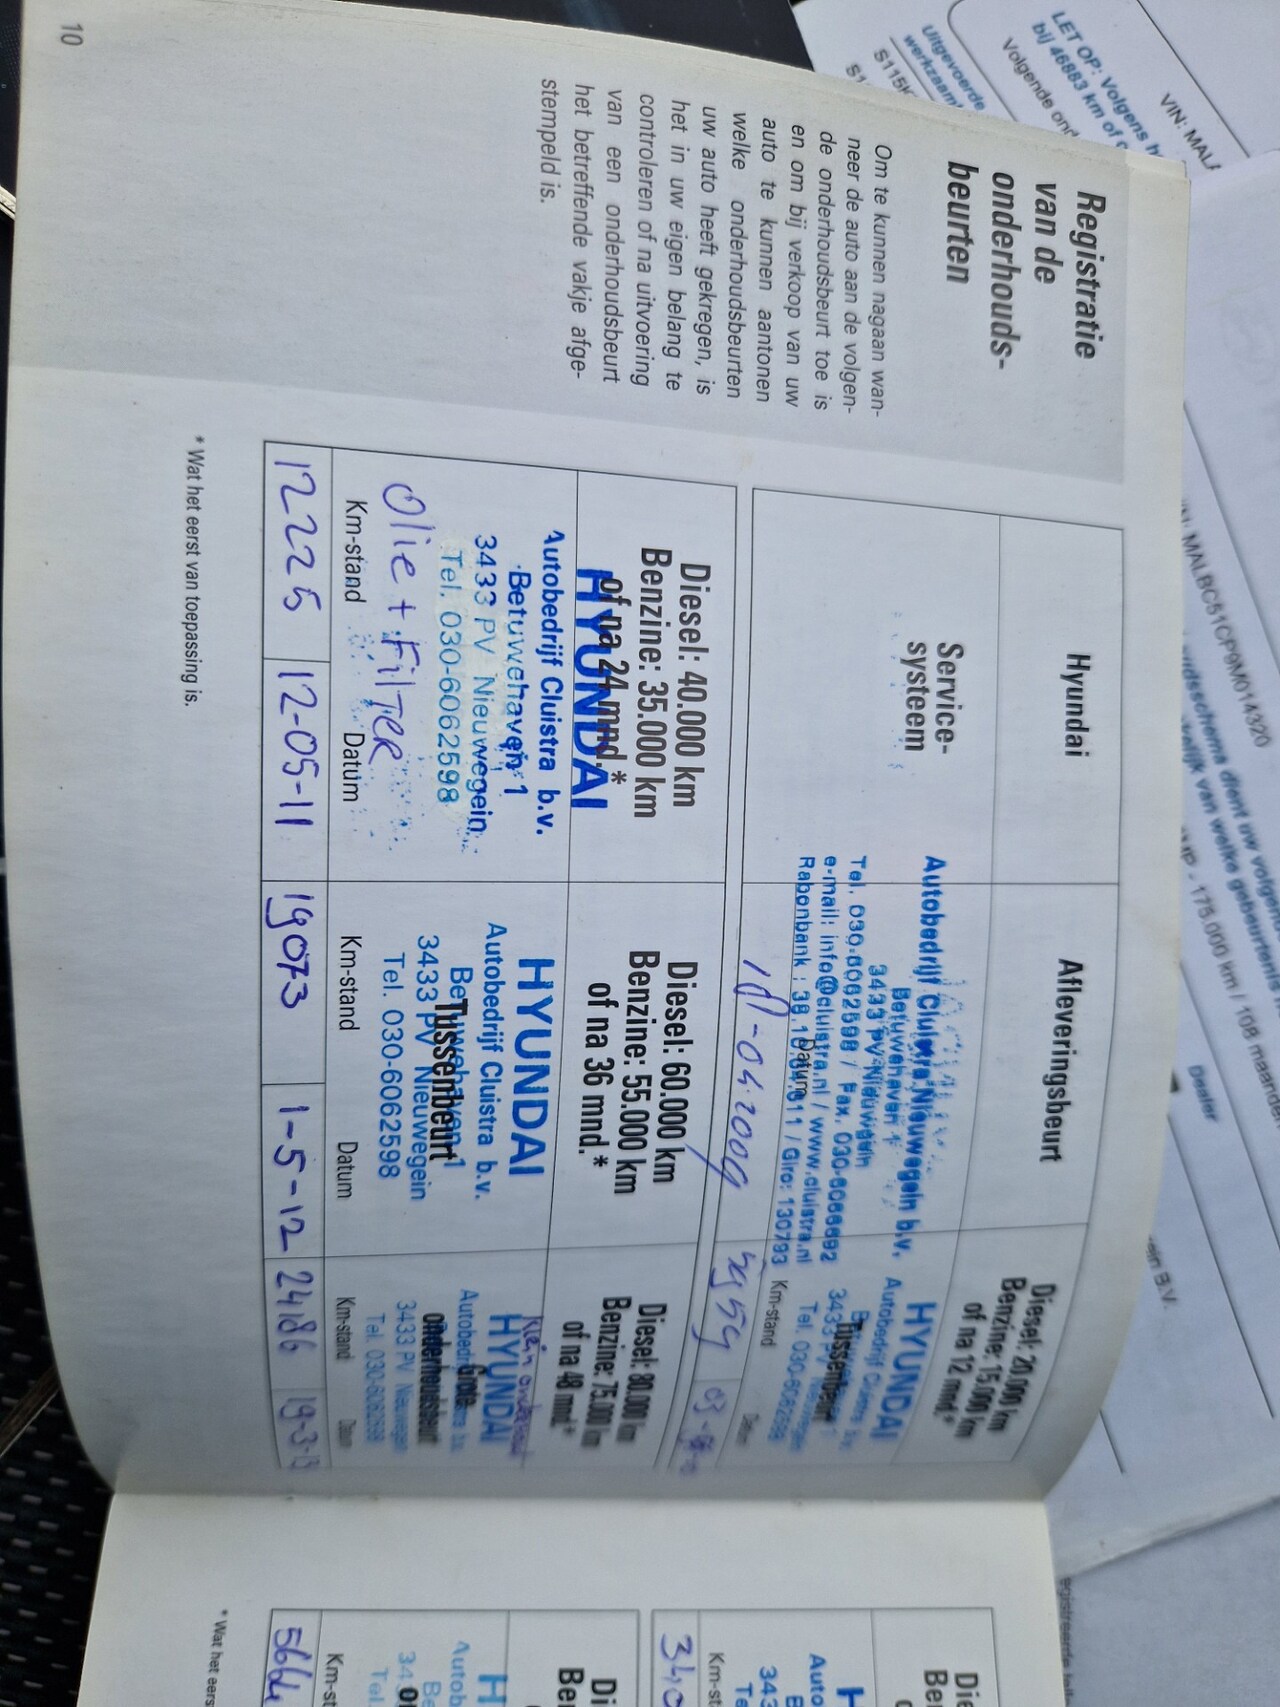 Registratie
van de
onderhouds-
beurten
Om te kunnen nagaan wan-
neer de auto aan de volgen-
de onderhoudsbeurt toe is
en om bij verkoop van uw
auto te kunnen aantonen
welke onderhoudsbeurten
uw auto heeft gekregen, is
het in uw eigen belang te
controleren of na uitvoering
van een onderhoudsbeurt
het betreffende vakje afge-
stempeld is.
10
Hyundai
Service-
systeem
Afleveringsbeurt
Autobedrijf Cluistra Nieuwegein b.v.
Betuwehaven 1
3433 PV Nieuwegein
Tel. 030-6062598 / Fax. 030-6066692
e-mail: info@cluistra.nl / www.cluistra.nl
Rabobank : 38.1
/ Giro: 130793
Datum
-04-2009
Diesel: 20.000 km
Benzine: 15.000 km
of na 12 mnd.*
HYUNDAI
Autobedrijf Cluistra b.v.
Tussenbeurt
3433 PV Nieuwegein
Tel. 030-6062598
Km-stand
Datum
Diesel: 40.000 km
Benzine: 35.000 km
of na 24 mnd.*
HYUNDAI
Autobedrijf Cluistra b.v.
Betuwehaven 1
3433 PV Nieuwegein
Tel. 030-6062598
Olie + FilTER
Km-stand
Datum
12225
12-05-11
Diesel: 60.000 km
Benzine: 55.000 km
of na 36 mnd.*
HYUNDAI
Autobedrijf Cluistra b.v.
Betuwehaven 1
Tussenbeurt
3433 PV Nieuwegein
Tel. 030-6062598
Km-stand
Datum
19073
1-5-12
Diesel: 80.000 km
Benzine: 75.000 km
of na 48 mnd.*
Klein onderhoud
HYUNDAI
Grote
onderhoudsbeurt
3433 PV Nieuwegein
Tel. 030-6062598
Km-stand
Datum
24186
19-3-13
* Wat het eerst van toepassing is.
* Wat het eers
Km-st
Km-st
VIN: MAL
LET OP: Volgens h
bij 46883 km of
Volgende ond
Uitgevoerde
werkzaam
S115K
MALBC51CP9M014320
dsschema dient uw volgen
elijk van welke gebeurtenis
175.000 km / 108 maanden
Dealer
ein B.V.